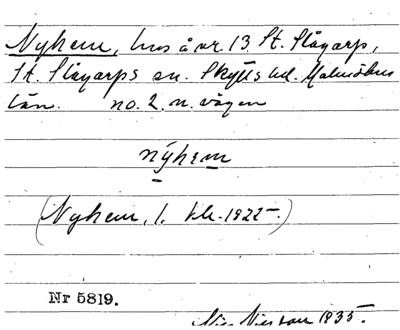 Nyhem, hus å nr. 13 St. Slågarp,
St. Slågarps sn. Skytts hd. Malmöhus
län. no. 2. n. vägen
nýhem
(Nyhem, l. kle. 1922–.)
Nr 5819.
Nils Nilsson 1935.